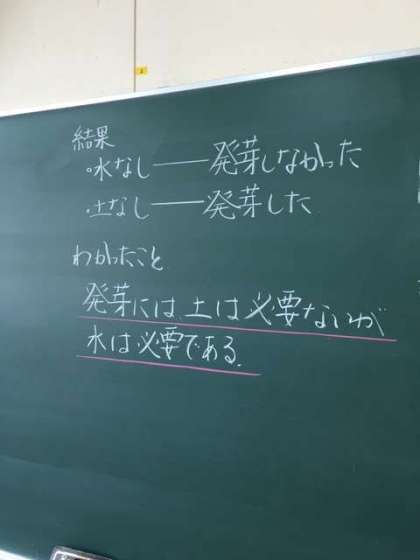 結果
・水なし――発芽しなかった
・土なし――発芽した
わかったこと
発芽には、土は必要ないが
水は必要である。